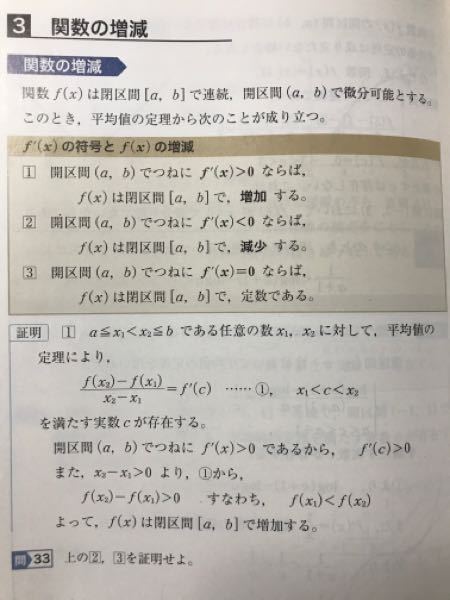 3 関数の増減
関数の増減
関数 f(x) は閉区間 [a, b] で連続,開区間 (a, b) で微分可能とする。
このとき,平均値の定理から次のことが成り立つ。
f'(x) の符号と f(x) の増減
1 開区間 (a, b) でつねに f'(x)>0 ならば,
f(x) は閉区間 [a, b] で,増加 する。
2 開区間 (a, b) でつねに f'(x)<0 ならば,
f(x) は閉区間 [a, b] で,減少 する。
3 開区間 (a, b) でつねに f'(x)=0 ならば,
f(x) は閉区間 [a, b] で,定数である。
証明 1 a≦x₁<x₂≦b である任意の数 x₁, x₂ に対して,平均値の
定理により,
(f(x₂)-f(x₁))/(x₂-x₁)=f'(c) ……①, x₁<c<x₂
を満たす実数 c が存在する。
開区間 (a, b) でつねに f'(x)>0 であるから, f'(c)>0
また,x₂-x₁>0 より,①から,
f(x₂)-f(x₁)>0 すなわち, f(x₁)<f(x₂)
よって,f(x) は閉区間 [a, b] で増加する。
問33 上の2,3を証明せよ。